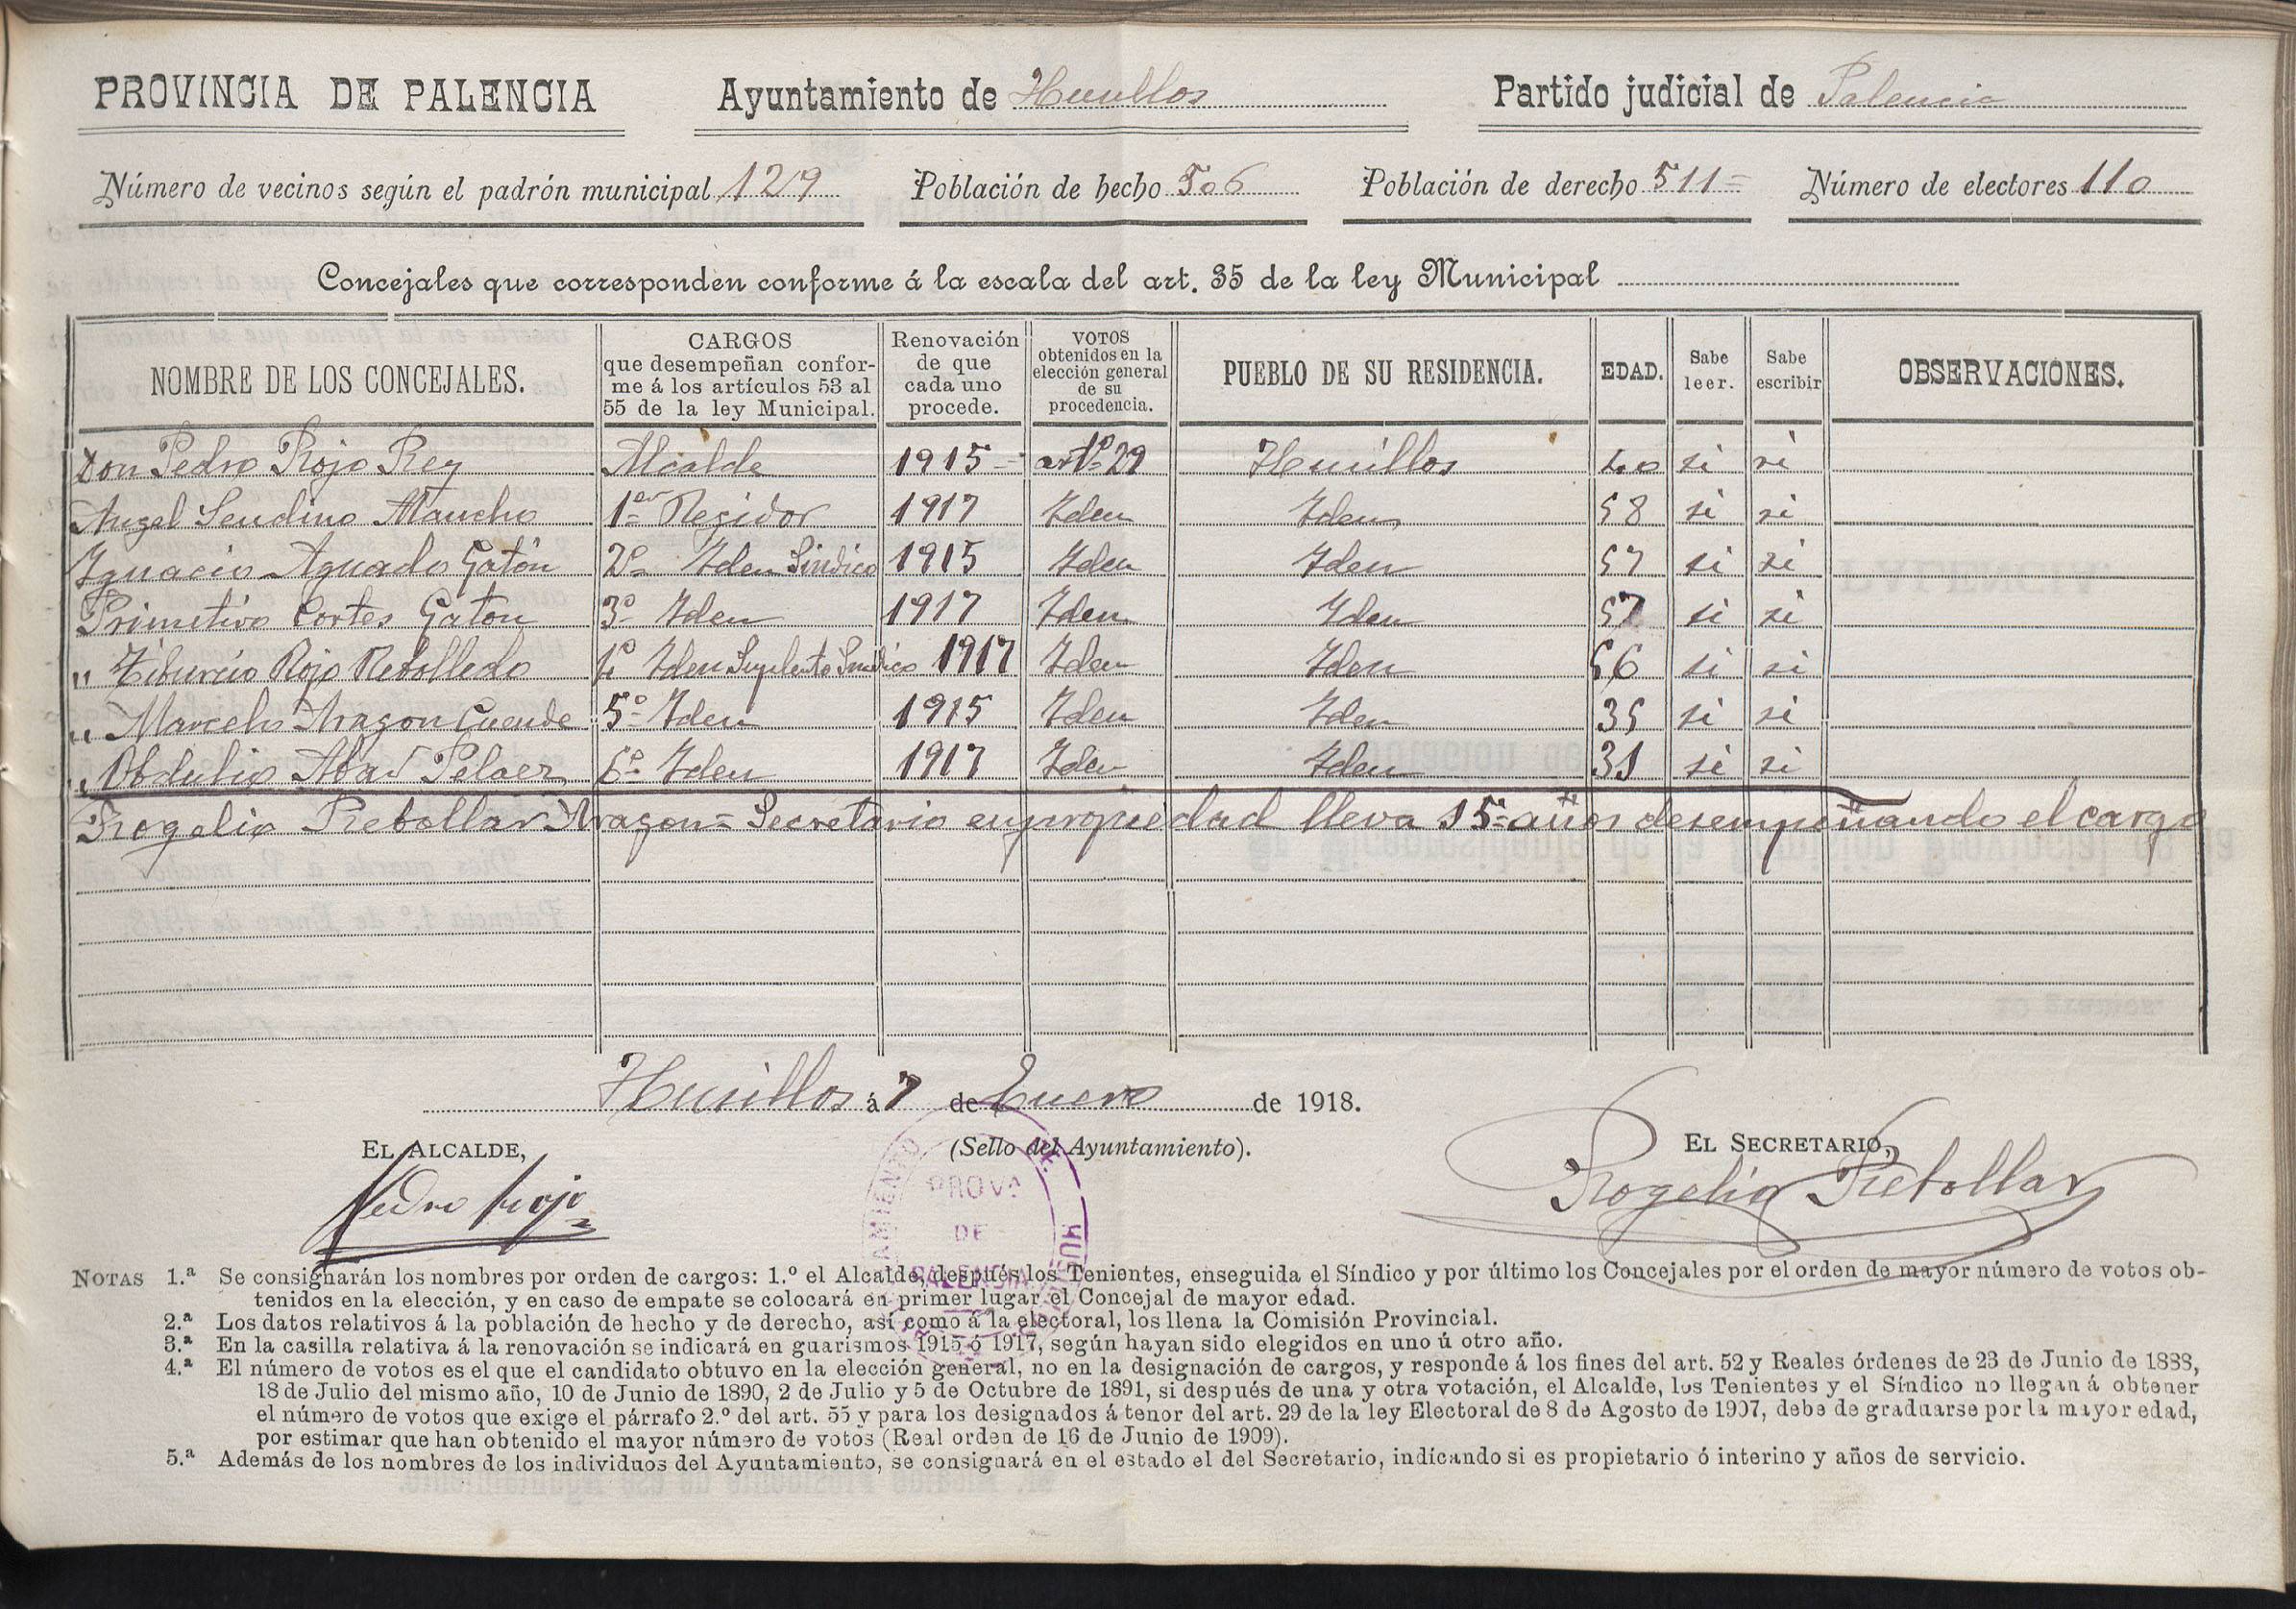 PROVINCIA DE PALENCIA Ayuntamiento de Husillos Partido judicial de Palencia
Número de vecinos según el padrón municipal 129 Población de hecho 506 Población de derecho 511= Número de electores 110
Concejales que corresponden conforme á la escala del art. 35 de la ley Municipal
NOMBRE DE LOS CONCEJALES. CARGOS que desempeñan confor- me á los artículos 53 al 55 de la ley Municipal. Renovación de que cada uno procede. VOTOS obtenidos en la elección general de su procedencia. PUEBLO DE SU RESIDENCIA. EDAD. Sabe leer. Sabe escribir OBSERVACIONES.
Don Pedro Rojo Rey Alcalde 1915 artº 29 Husillos 40 si si
Angel Sendino Mancho 1er Regidor 1917 Idem Idem 58 si si
Ignacio Aguado Gatón 2º Idem Sindico 1915 Idem Idem 57 si si
Primitivo Cortes Gaton 3º Idem 1917 Idem Idem 57 si si
" Tiburcio Rojo Rebolledo 4º Idem Suplente Sindico 1917 Idem Idem 56 si si
" Marcelo Aragon Cuende 5º Idem 1915 Idem Idem 35 si si
" Obdulio Abad Pelaez 6º Idem 1917 Idem Idem 31 si si
Rogelio Rebollar Aragon= Secretario en propiedad lleva 15= años desempeñando el cargo
Husillos á 7 de Enero de 1918.
EL ALCALDE, (Sello del Ayuntamiento). EL SECRETARIO,
Pedro Rojo Rogelio Rebollar
AYUNTAMIENTO DE HUSILLOS
PROVA
DE
PALENCIA
NOTAS 1.ª Se consignarán los nombres por orden de cargos: 1.º el Alcalde, después los Tenientes, enseguida el Síndico y por último los Concejales por el orden de mayor número de votos ob-
tenidos en la elección, y en caso de empate se colocará en primer lugar el Concejal de mayor edad.
2.ª Los datos relativos á la población de hecho y de derecho, así como á la electoral, los llena la Comisión Provincial.
3.ª En la casilla relativa á la renovación se indicará en guarismos 1915 ó 1917, según hayan sido elegidos en uno ú otro año.
4.ª El número de votos es el que el candidato obtuvo en la elección general, no en la designación de cargos, y responde á los fines del art. 52 y Reales órdenes de 23 de Junio de 1888,
18 de Julio del mismo año, 10 de Junio de 1890, 2 de Julio y 5 de Octubre de 1891, si después de una y otra votación, el Alcalde, los Tenientes y el Síndico no llegan á obtener
el número de votos que exige el párrafo 2.º del art. 55 y para los designados á tenor del art. 29 de la ley Electoral de 8 de Agosto de 1907, debe de graduarse por la mayor edad,
por estimar que han obtenido el mayor número de votos (Real orden de 16 de Junio de 1909).
5.ª Además de los nombres de los individuos del Ayuntamiento, se consignará en el estado el del Secretario, indicando si es propietario ó interino y años de servicio.